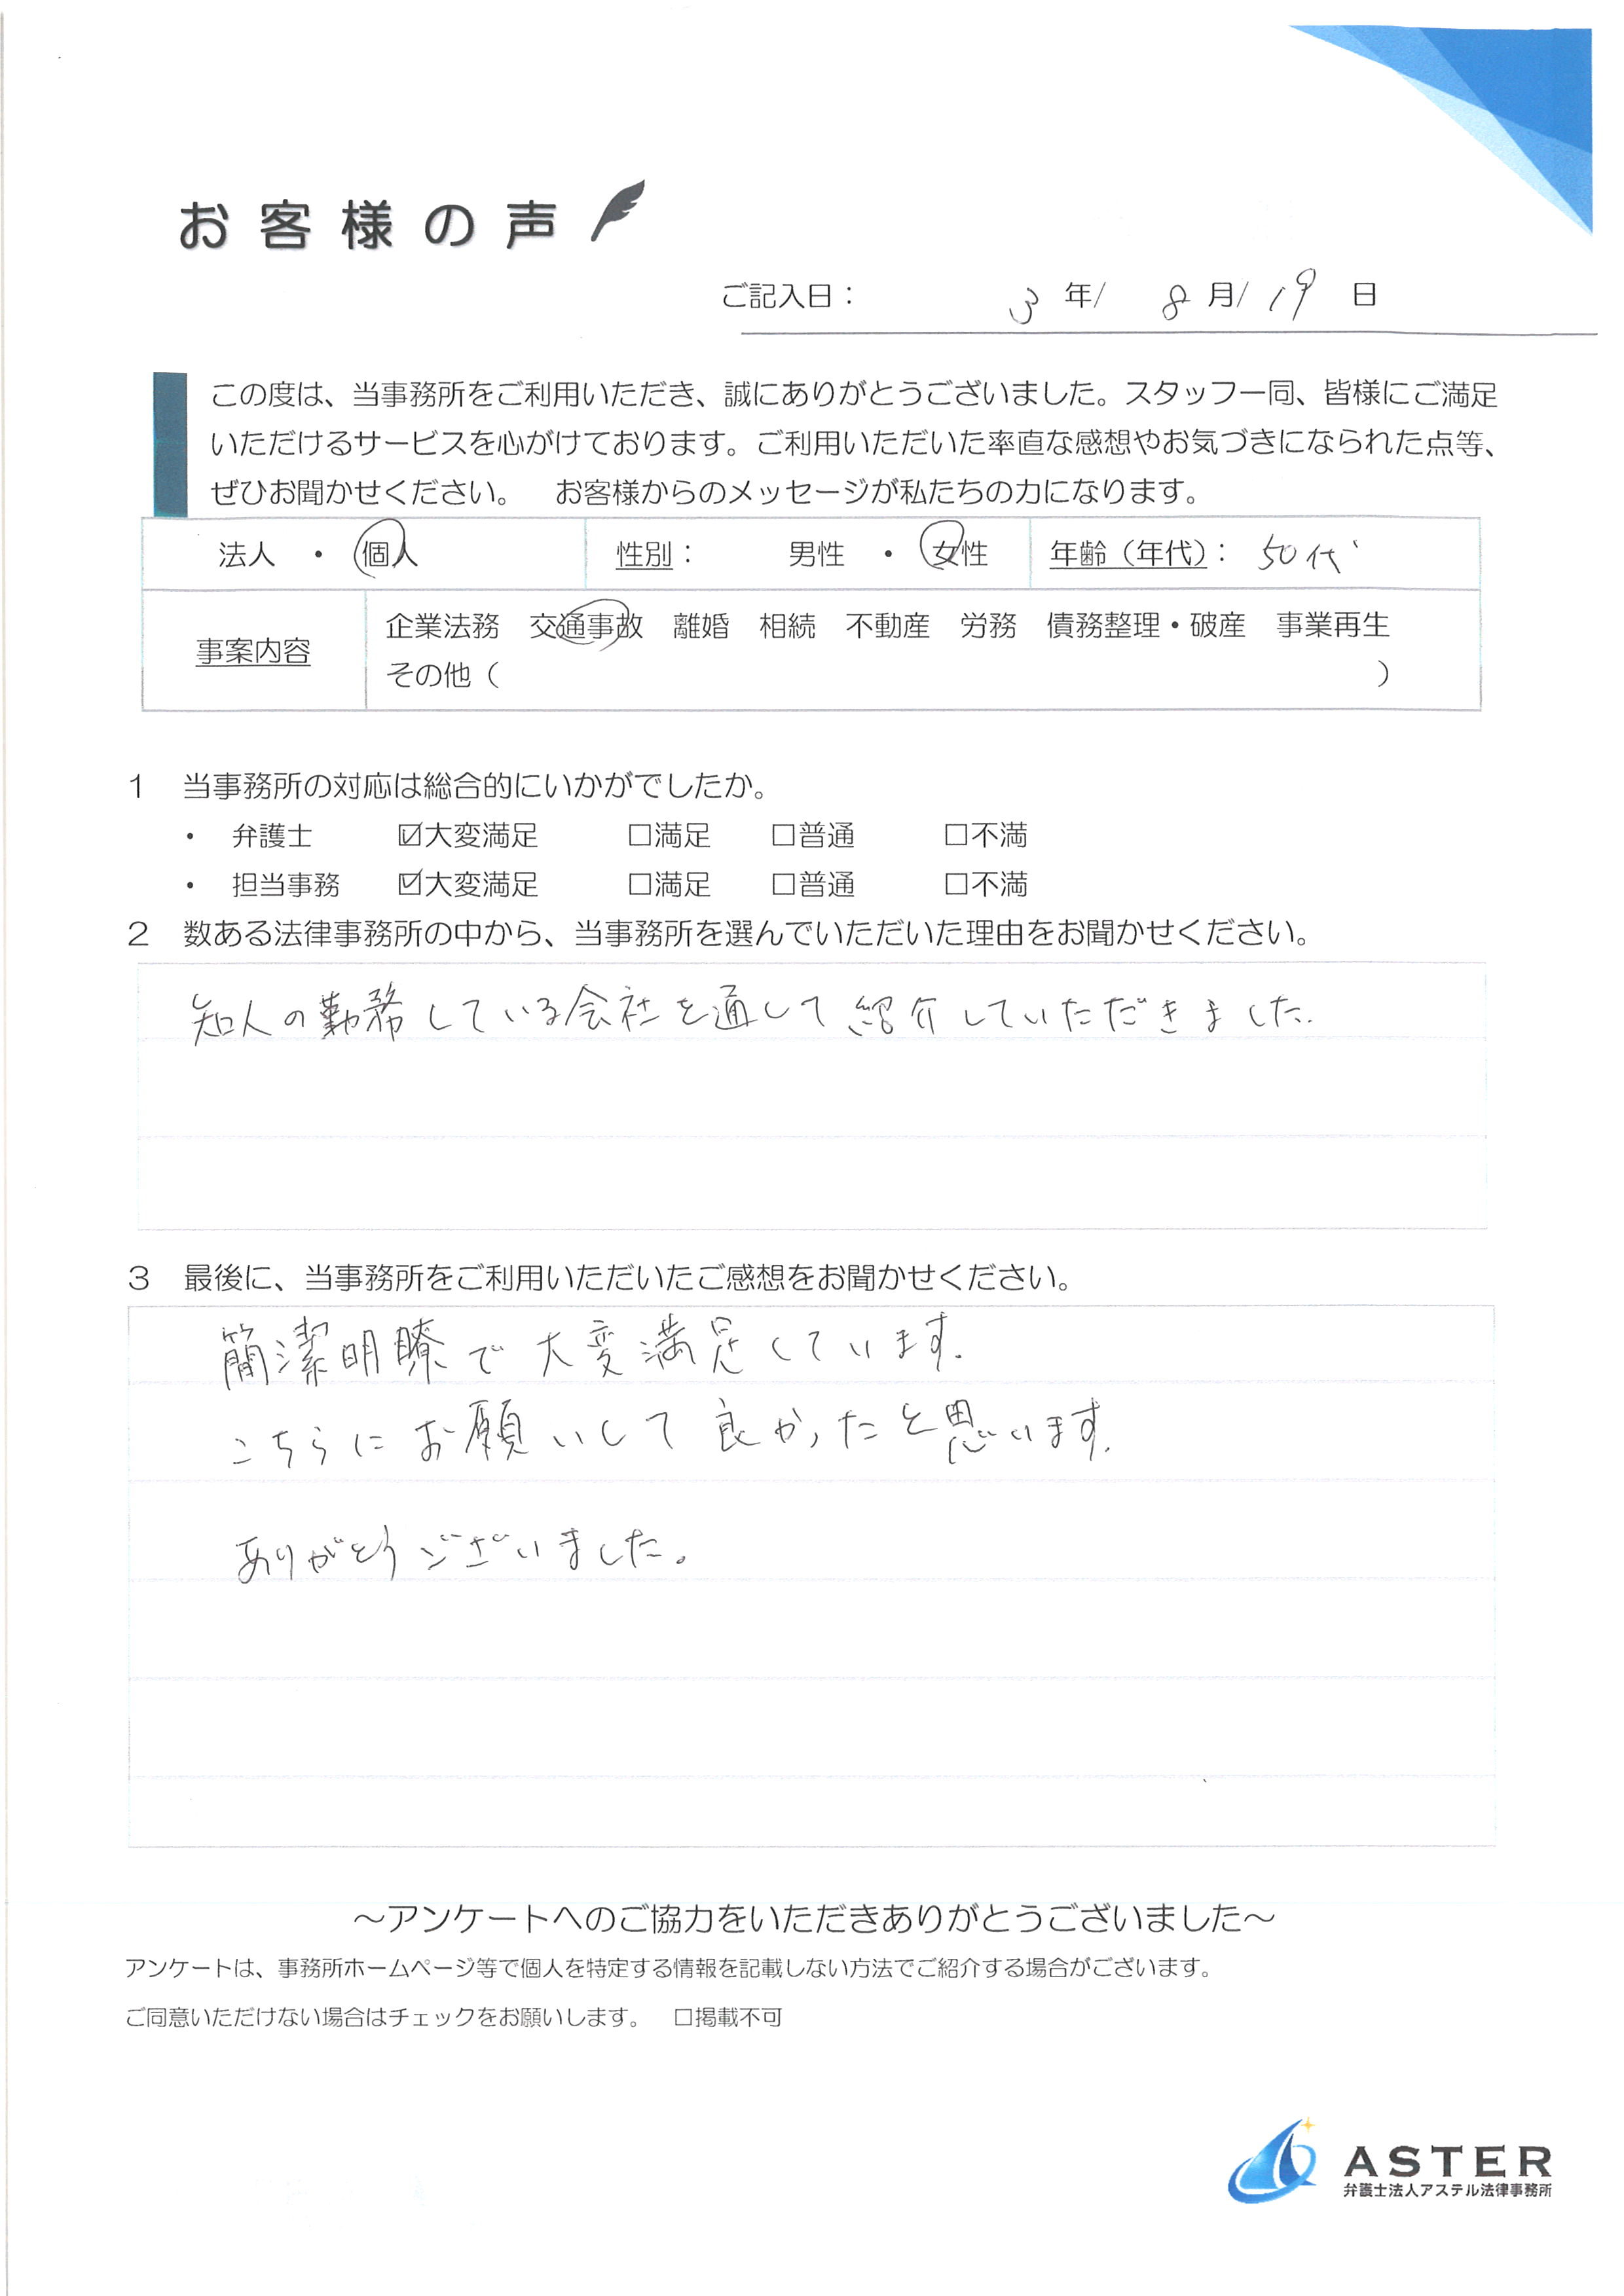 お客様の声
ご記入日： 3 年/ 8 月/ 19 日
この度は、当事務所をご利用いただき、誠にありがとうございました。スタッフ一同、皆様にご満足
いただけるサービスを心がけております。ご利用いただいた率直な感想やお気づきになられた点等、
ぜひお聞かせください。　お客様からのメッセージが私たちの力になります。
法人　・　個人　性別：　男性　・　女性　年齢（年代）： 50代
事案内容
企業法務　交通事故　離婚　相続　不動産　労務　債務整理・破産　事業再生
その他（　　　）
1　当事務所の対応は総合的にいかがでしたか。
・　弁護士　☑大変満足　□満足　□普通　□不満
・　担当事務　☑大変満足　□満足　□普通　□不満
2　数ある法律事務所の中から、当事務所を選んでいただいた理由をお聞かせください。
知人の勤務している会社を通して紹介していただきました.
3　最後に、当事務所をご利用いただいたご感想をお聞かせください。
簡潔明瞭で大変満足しています.
こちらにお願いして良かったと思います.
ありがとうございました。
～アンケートへのご協力をいただきありがとうございました～
アンケートは、事務所ホームページ等で個人を特定する情報を記載しない方法でご紹介する場合がございます。
ご同意いただけない場合はチェックをお願いします。　□掲載不可
ASTER
弁護士法人アステル法律事務所